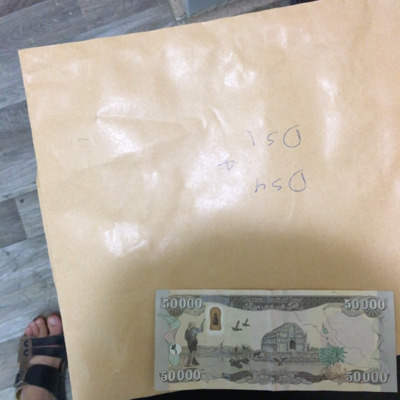 054
+
051
50000
50000
50000
50000